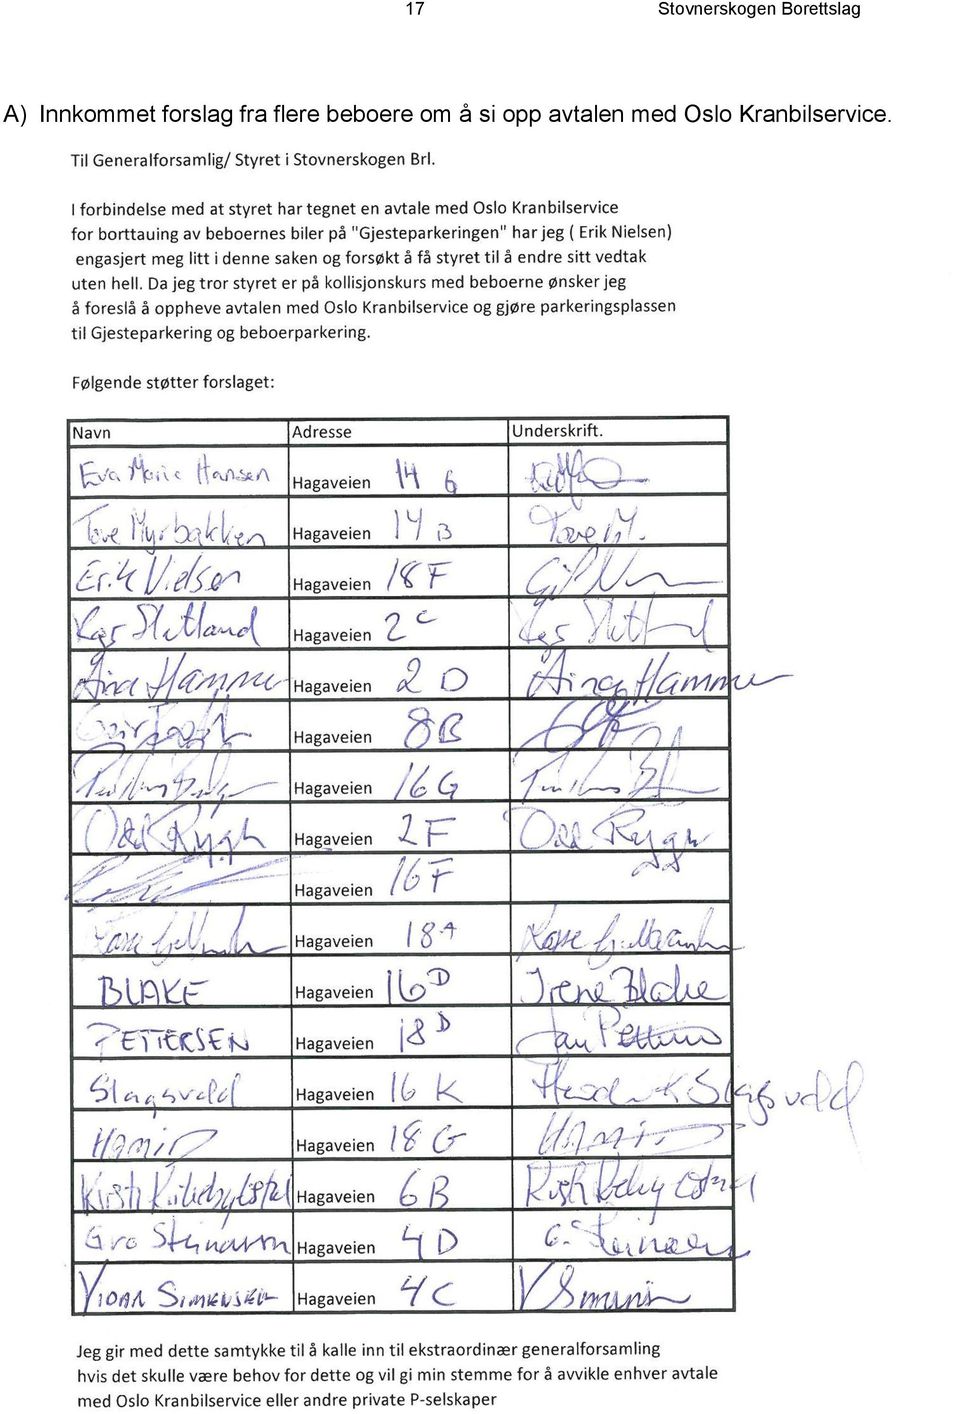 17 Stovnerskogen Borettslag
A) Innkommet forslag fra flere beboere om å si opp avtalen med Oslo Kranbilservice.
Til Generalforsamlig/ Styret i Stovnerskogen Brl.
I forbindelse med at styret har tegnet en avtale med Oslo Kranbilservice
for borttauing av beboernes biler på "Gjesteparkeringen" har jeg ( Erik Nielsen)
engasjert meg litt i denne saken og forsøkt å få styret til å endre sitt vedtak
uten hell. Da jeg tror styret er på kollisjonskurs med beboerne ønsker jeg
å foreslå å oppheve avtalen med Oslo Kranbilservice og gjøre parkeringsplassen
til Gjesteparkering og beboerparkering.
Følgende støtter forslaget:
Navn Adresse Underskrift.
Eva Marie Hansen Hagaveien 14 G
Tove Myrbakken Hagaveien 14 B Tove M.
Erik Nielsen Hagaveien 18 F
Hagaveien 2 C
Aina Hammer Hagaveien 2 D Aina Hammer
Hagaveien 8B
Hagaveien 16 G
Odd Rygh Hagaveien 2F Odd Rygh
Hagaveien 16 F
Hagaveien 18 A
BLAKE Hagaveien 16 D Irene Blake
PETTERSEN Hagaveien 18 D Jan
Slagsvold Hagaveien 16 K Slagsvold
HAMID Hagaveien 18 G HAMID
Kirsti Hagaveien 6 B
Gro Hagaveien 4 D G.
VIDAR SIMENSEN Hagaveien 4 C
Jeg gir med dette samtykke til å kalle inn til ekstraordinær generalforsamling
hvis det skulle være behov for dette og vil gi min stemme for å avvikle enhver avtale
med Oslo Kranbilservice eller andre private P-selskaper